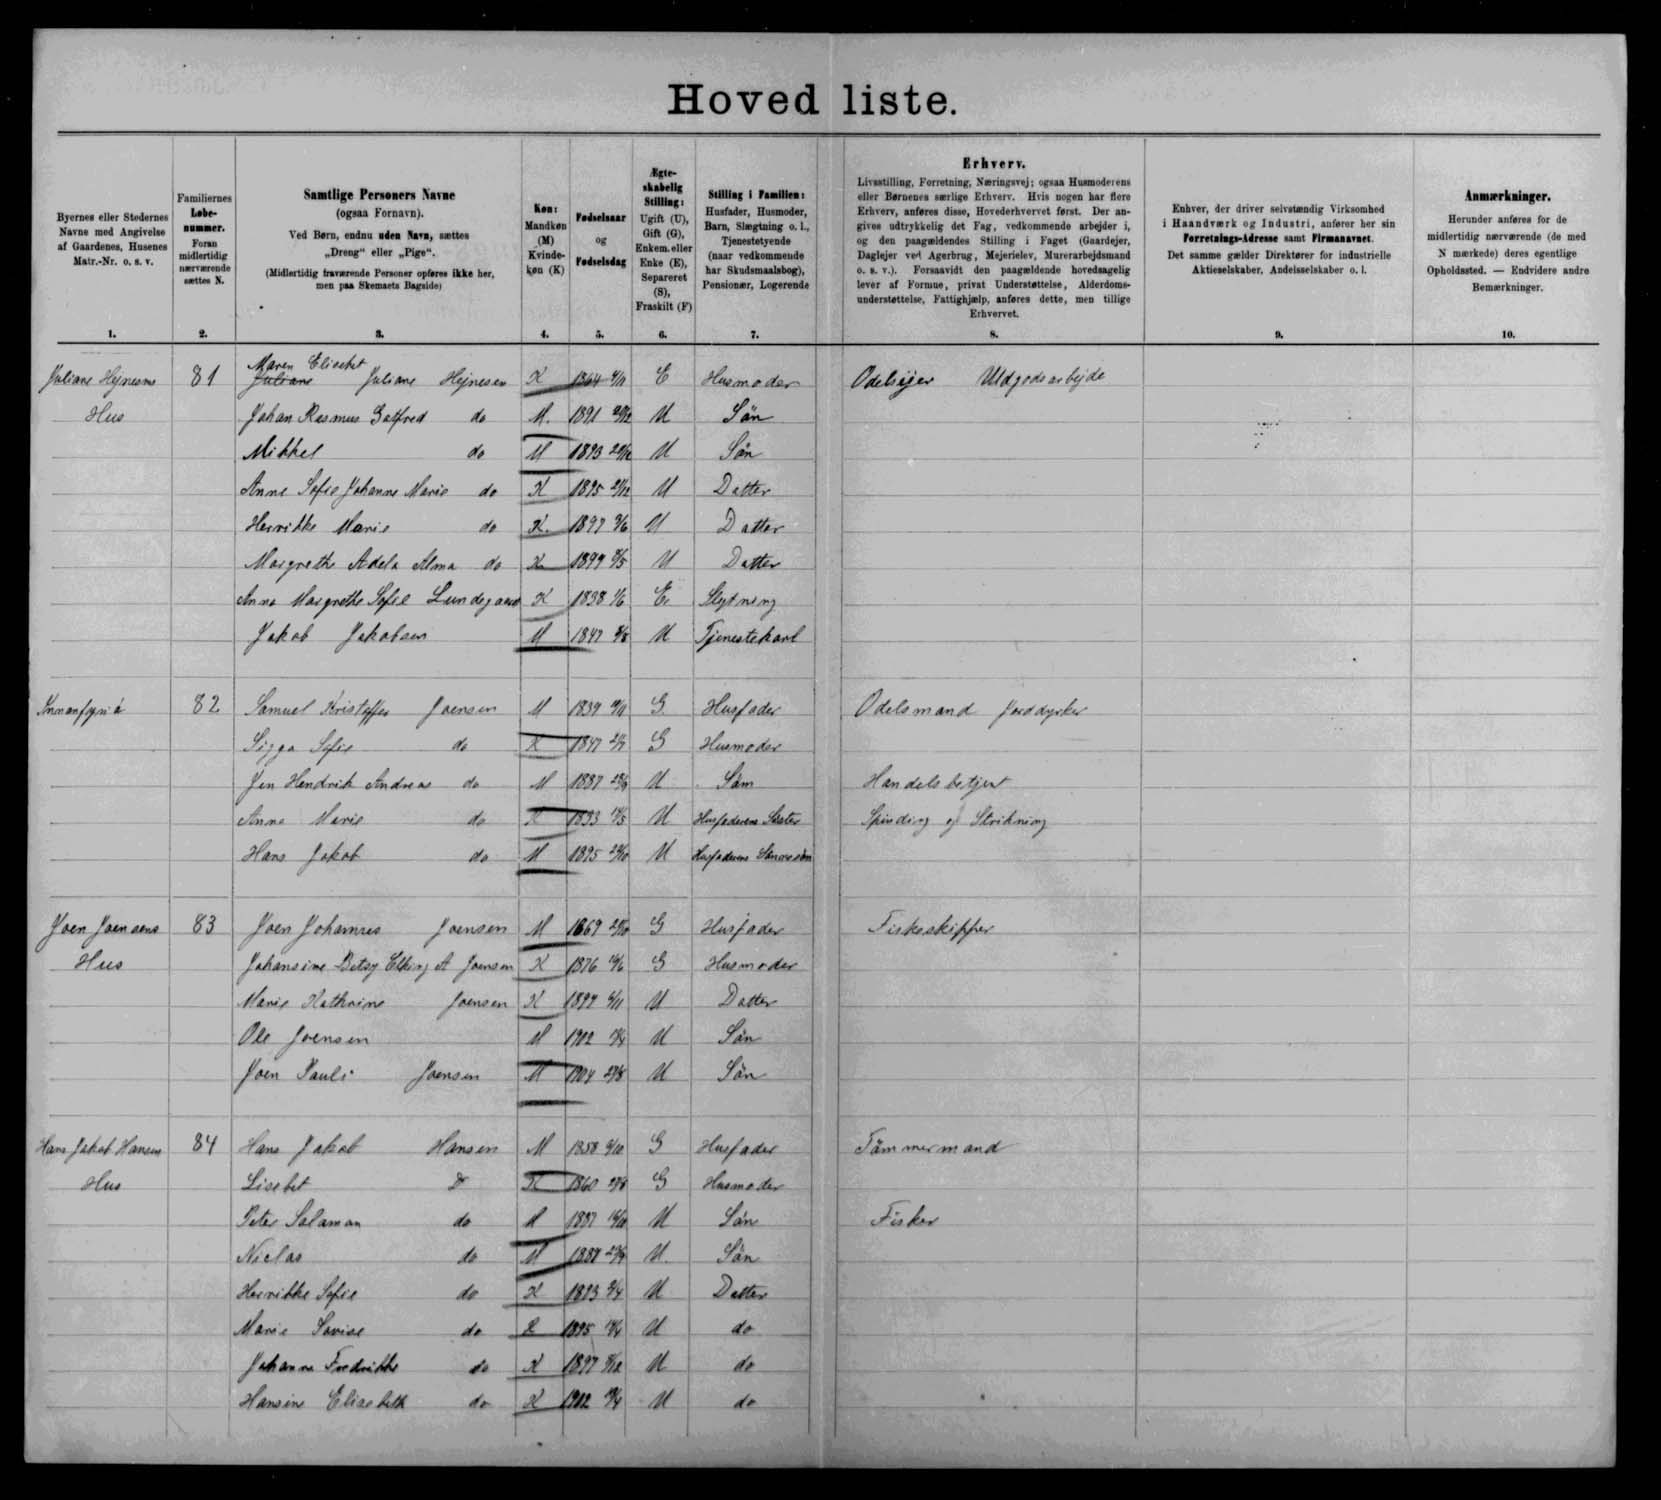 Hoved liste.
Byernes eller Stedernes Navne med Angivelse af Gaardenes, Husenes Matr.-Nr. o. s. v.
Familiernes Løbenummer. Foran midlertidig nærværende sættes N.
Samtlige Personers Navne
(ogsaa Fornavn).
Ved Børn, endnu uden Navn, sættes
„Dreng“ eller „Pige“.
(Midlertidig fraværende Personer opføres ikke her,
men paa Skemaets Bagside)
Køn: Mandkøn (M) Kvindekøn (K)
Fødselsaar og Fødselsdag
Ægteskabelig Stilling: Ugift (U), Gift (G), Enkem. eller Enke (E), Separeret (S), Fraskilt (F)
Stilling i Familien: Husfader, Husmoder, Barn, Slægtning o. l., Tjenestetyende (naar vedkommende har Skudsmaalsbog), Pensionær, Logerende
Erhverv.
Livsstilling, Forretning, Næringsvej; ogsaa Husmoderens
eller Børnenes særlige Erhverv. Hvis nogen har flere
Erhverv, anføres disse, Hovederhvervet først. Der an-
gives udtrykkelig det Fag, vedkommende arbejder i,
og den paagældendes Stilling i Faget (Gaardejer,
Daglejer ved Agerbrug, Mejerielev, Murerarbejdsmand
o. s. v.). Forsaavidt den paagældende hovedsagelig
lever af Formue, privat Understøttelse, Alderdoms-
understøttelse, Fattighjælp, anføres dette, men tillige
Erhvervet.
Enhver, der driver selvstændig Virksomhed
i Haandværk og Industri, anfører her sin
Forretnings-Adresse samt Firmanavnet.
Det samme gælder Direktører for industrielle
Aktieselskaber, Andelsselskaber o. l.
Anmærkninger.
Herunder anføres for de
midlertidig nærværende (de med
N mærkede) deres egentlige
Opholdssted. — Endvidere andre
Bemærkninger.
1. 2. 3. 4. 5. 6. 7. 8. 9. 10.
Maren Elisebet
Juliane Hejnesens 81 Juliane Juliane Hejnesen K 1864 E Husmoder Odelsejer Udgodsarbejde
Hus Johan Rasmus Gotfred do M. 1891 U Sön
Mikkel do M 1893 U Sön
Anne Sofie Johanne Marie do K 1895 U Datter
Henrikke Marie do K. 1897 U Datter
Margrethe Adela Alma do K 1899 U Datter
Anna Margrethe Sofie Lundsgaard K 1838 E Slegtning
Jakob Jakobsen M 1847 U Tjenestekarl
82 Samuel Kristoffer Joensen M 1839 G. Husfader Odelsmand Jorddyrker
Sigga Sofie do K 1847 G Husmoder
Jen Hendrik Andreas do M 1887 U Sön Handelsbetjent
Anna Marie do K U Husfaderens Søster Spinding og Strikning
Hans Jakob do M 1895 U Husfaderens Sönnesön
Joen Joensens 83 Joen Johannes Joensen M 1869 G Husfader Fiskeskipper
Hus Johansine Betsy A Joensen K 1876 G Husmoder
Marie Kathrine Joensen K 1899 U Datter
Ole Joensen M 1902 U Sön
Joen Pauli Joensen M 1904 U Sön
Hans Jakob Hansens 84 Hans Jakob Hansen M 1858 G Husfader Tömmermand
Hus Lisebet do K 1860 G Husmoder
Peter Salamon do M 1887 U Sön Fisker
Niclas do M U. Sön
Henrikke Sofie do K 1893 U Datter
Marie Lovise do K 1895 U do
Johanna Fredrikke do K 1897 U do
Hansine Elisebeth do K 1902 U do